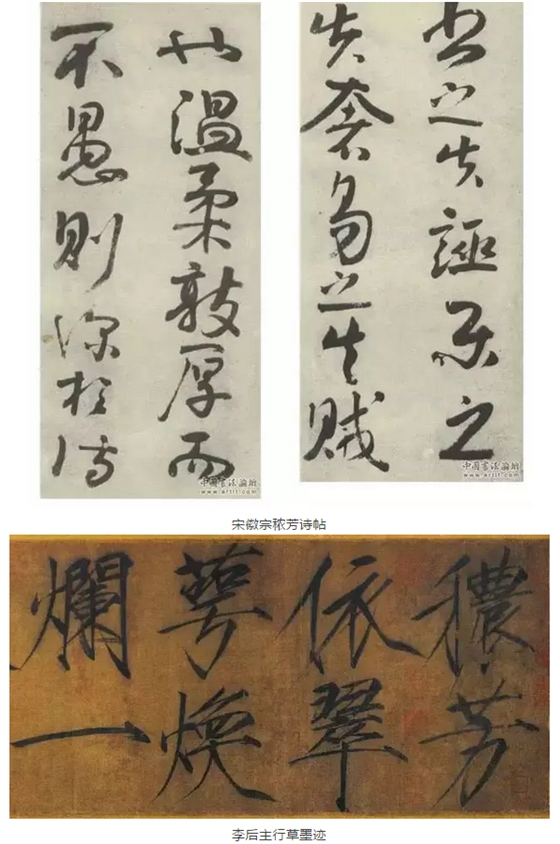 書之失誣樂之
失奢易之失賊
也溫柔敦厚而
不愚則深於詩
中國書法論壇
中國書法論壇
宋徽宗秾芳诗帖
穠芳
依翠
萼煥
爛一
李后主行草墨迹